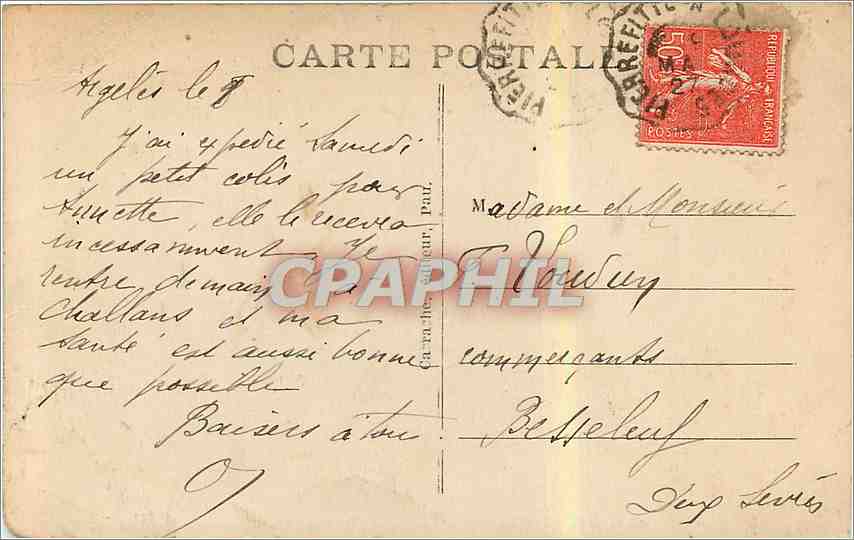 CARTE POSTALE
Argelès le
J'ai expédié Samedi
un petit colis pour
Annette, elle le recevra
incessamment. Je
rentre demain
Challans et ma
santé est aussi bonne
que possible
Baisers à tous
Carrache, éditeur, Pau.
PIERREFITTE-N
PIERREFITTE-N
MA
27
50c
REPUBLIQUE FRANÇAISE
POSTES
Madame et Monsieur
commerçants
Besseleuf
Deux Sevres
CPAPHIL